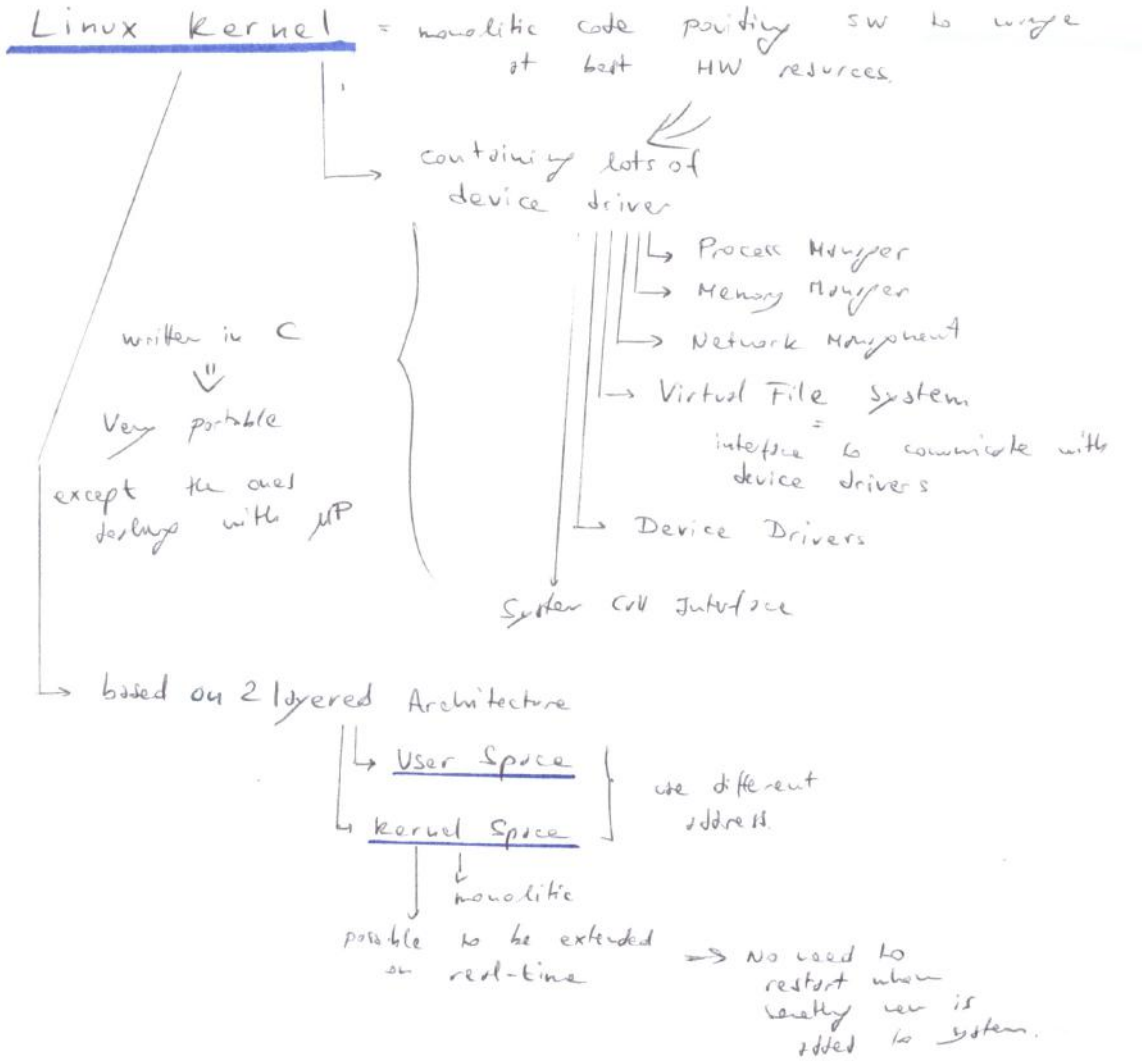 Linux Kernel = monolitic code SW to
at best HW resurces.
containing lots of
device driver
Process Manager
Memory Manager
Network Mangment
Virtual File System
=
interface to comunicate with
device drivers
Device Drivers
System Call Interface
written in C
⇓
Very portable
except the ones
with μP
based on 2 layered Architecture
User Space
Kernel Space
use different
address.
monolitic
possible to be extended
on real-time
=> No need to
restart when
new is
added to system.